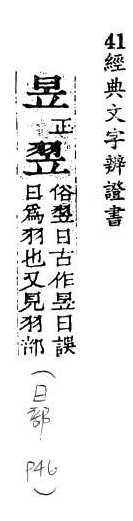 41經典文字辨證書
昱正翌俗翌日古作昱日誤
日爲羽也又見羽部
(日部
P46)